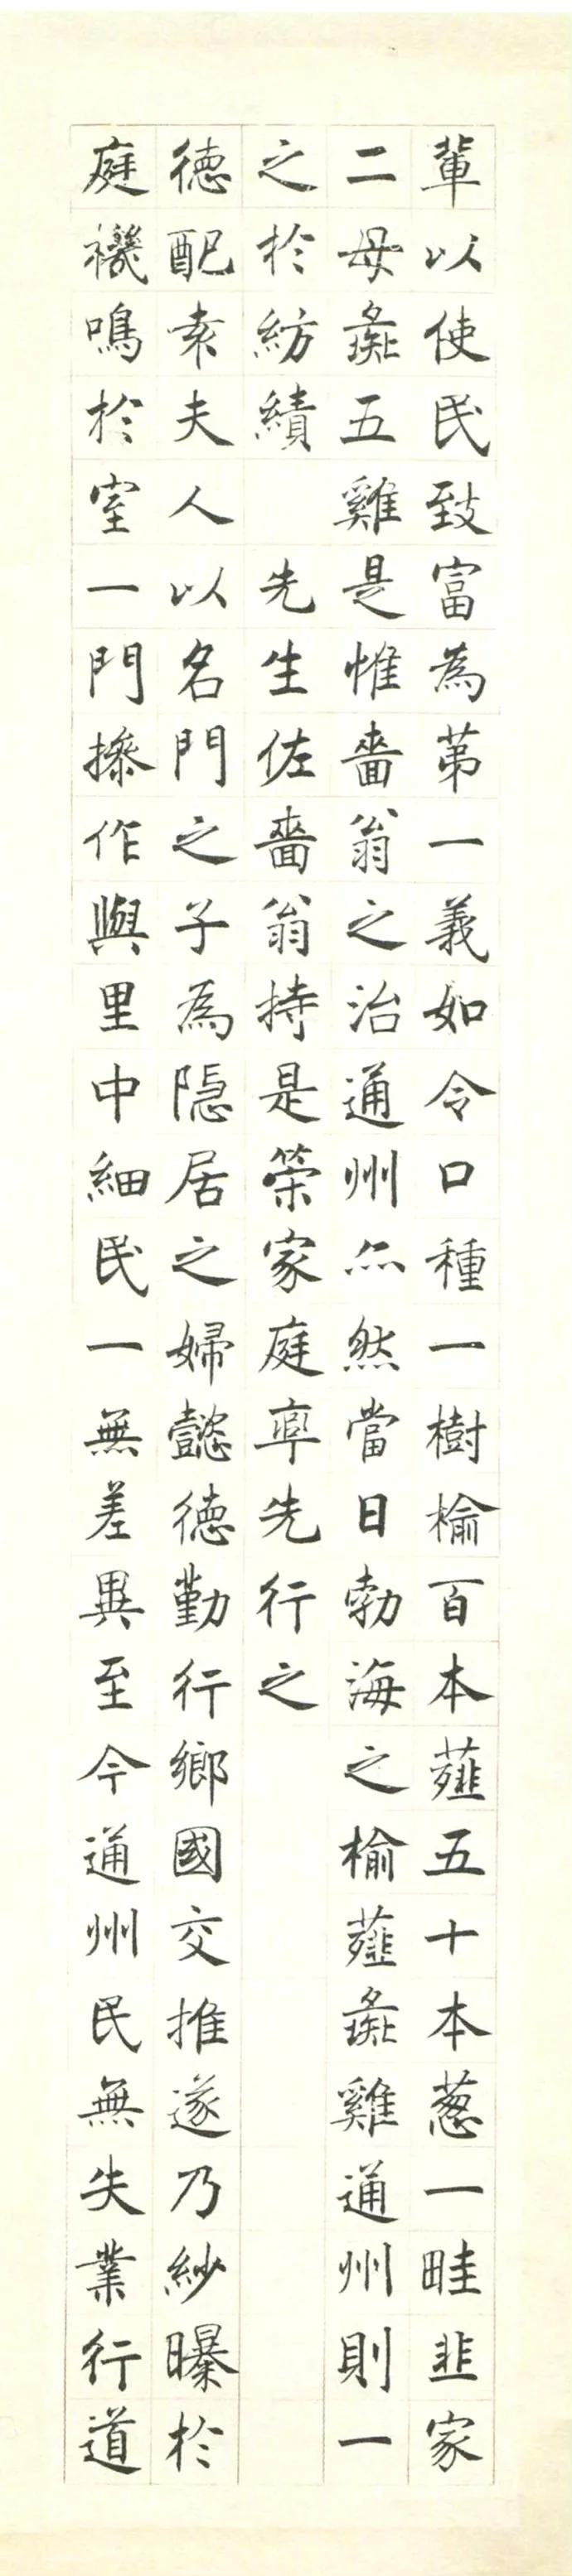 輩以使民致富為第一義如令口種一樹榆百本薤五十本葱一畦韭家
二母彘五雞是惟嗇翁之治通州亦然當日勃海之榆薤彘雞通州則一
之於紡績 先生佐嗇翁持是策家庭率先行之
德配袁夫人以名門之子為隱居之婦懿德勤行鄉國交推遂乃紗曝於
庭機鳴於室一門操作與里中細民一無差異至今通州民無失業行道